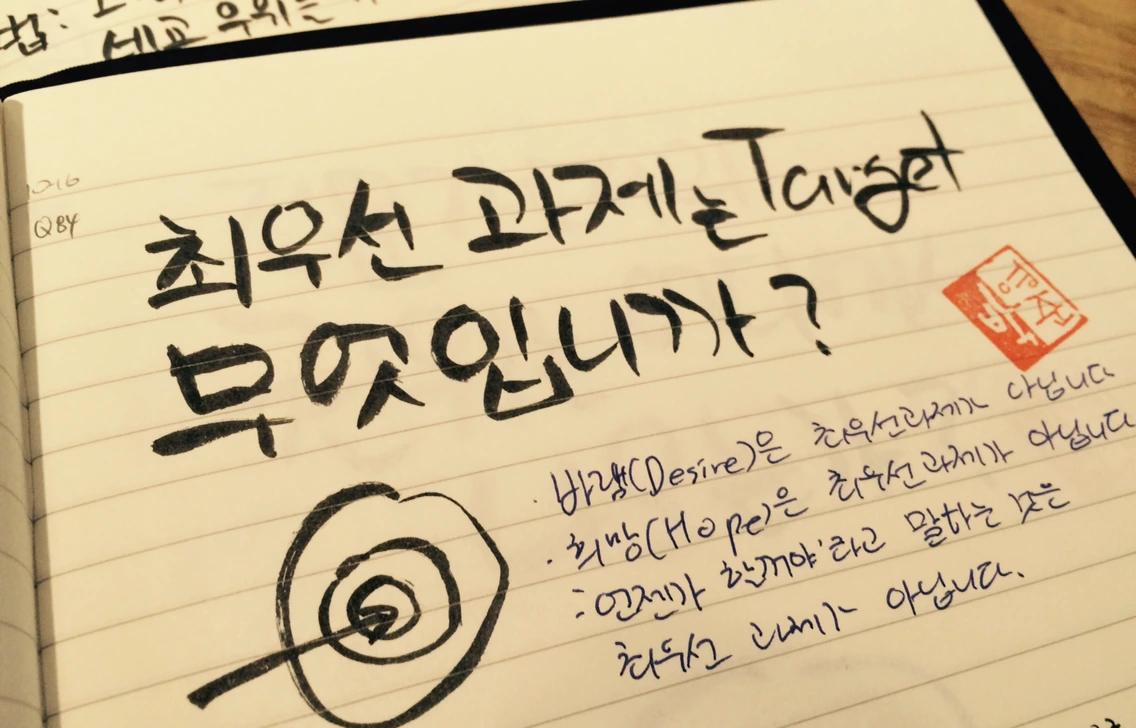 법:
세고 우위를
1016
Q84
최우선 과제는 Target
무엇입니까?
· 바램(Desire)은 최우선과제가 아닙니다
· 희망(Hope)은 최우선과제가 아닙니다
: 언젠가 할꺼야'라고 말하는 것은
최우선 과제가 아닙니다.